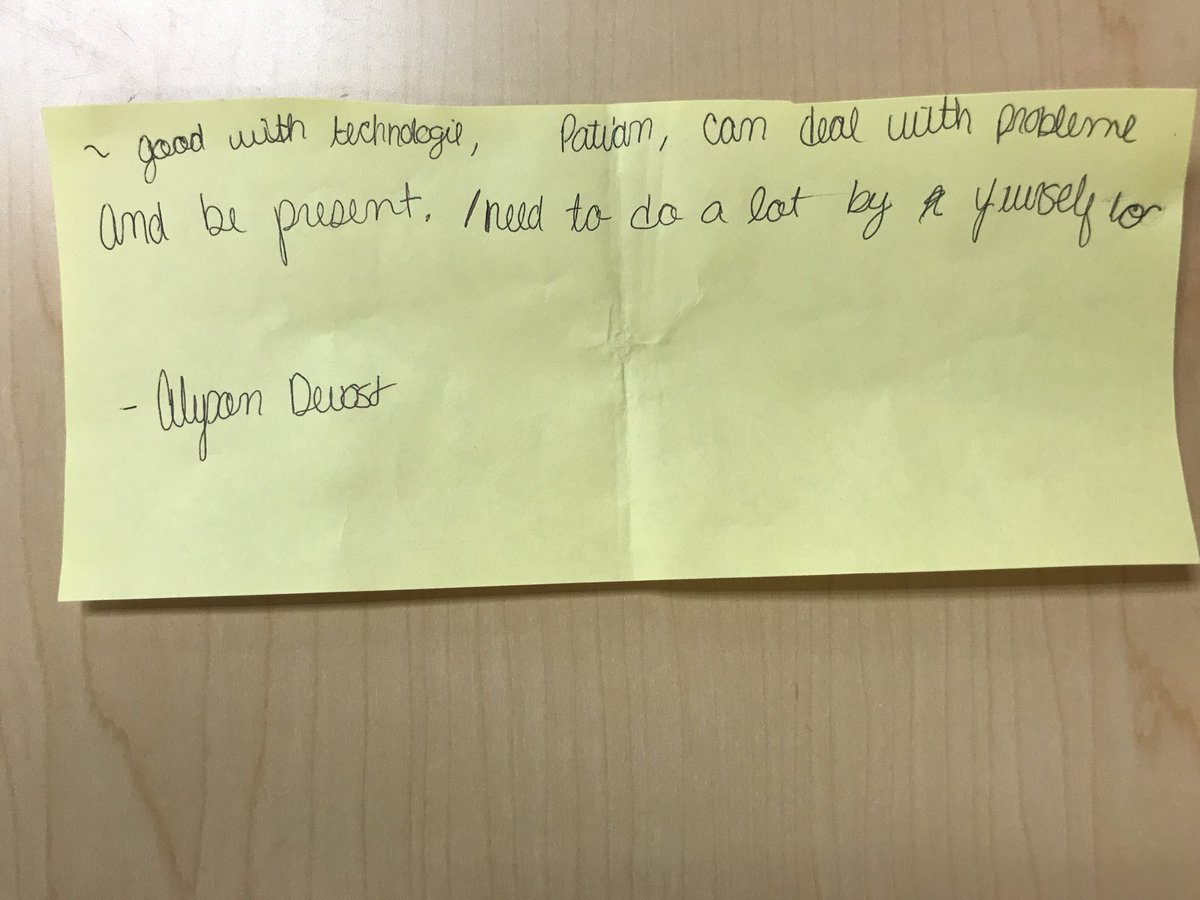 ~ good with technologie, Patian, can deal with probleme
and be present. / need to do a lot by yurself
- Alyson Devost